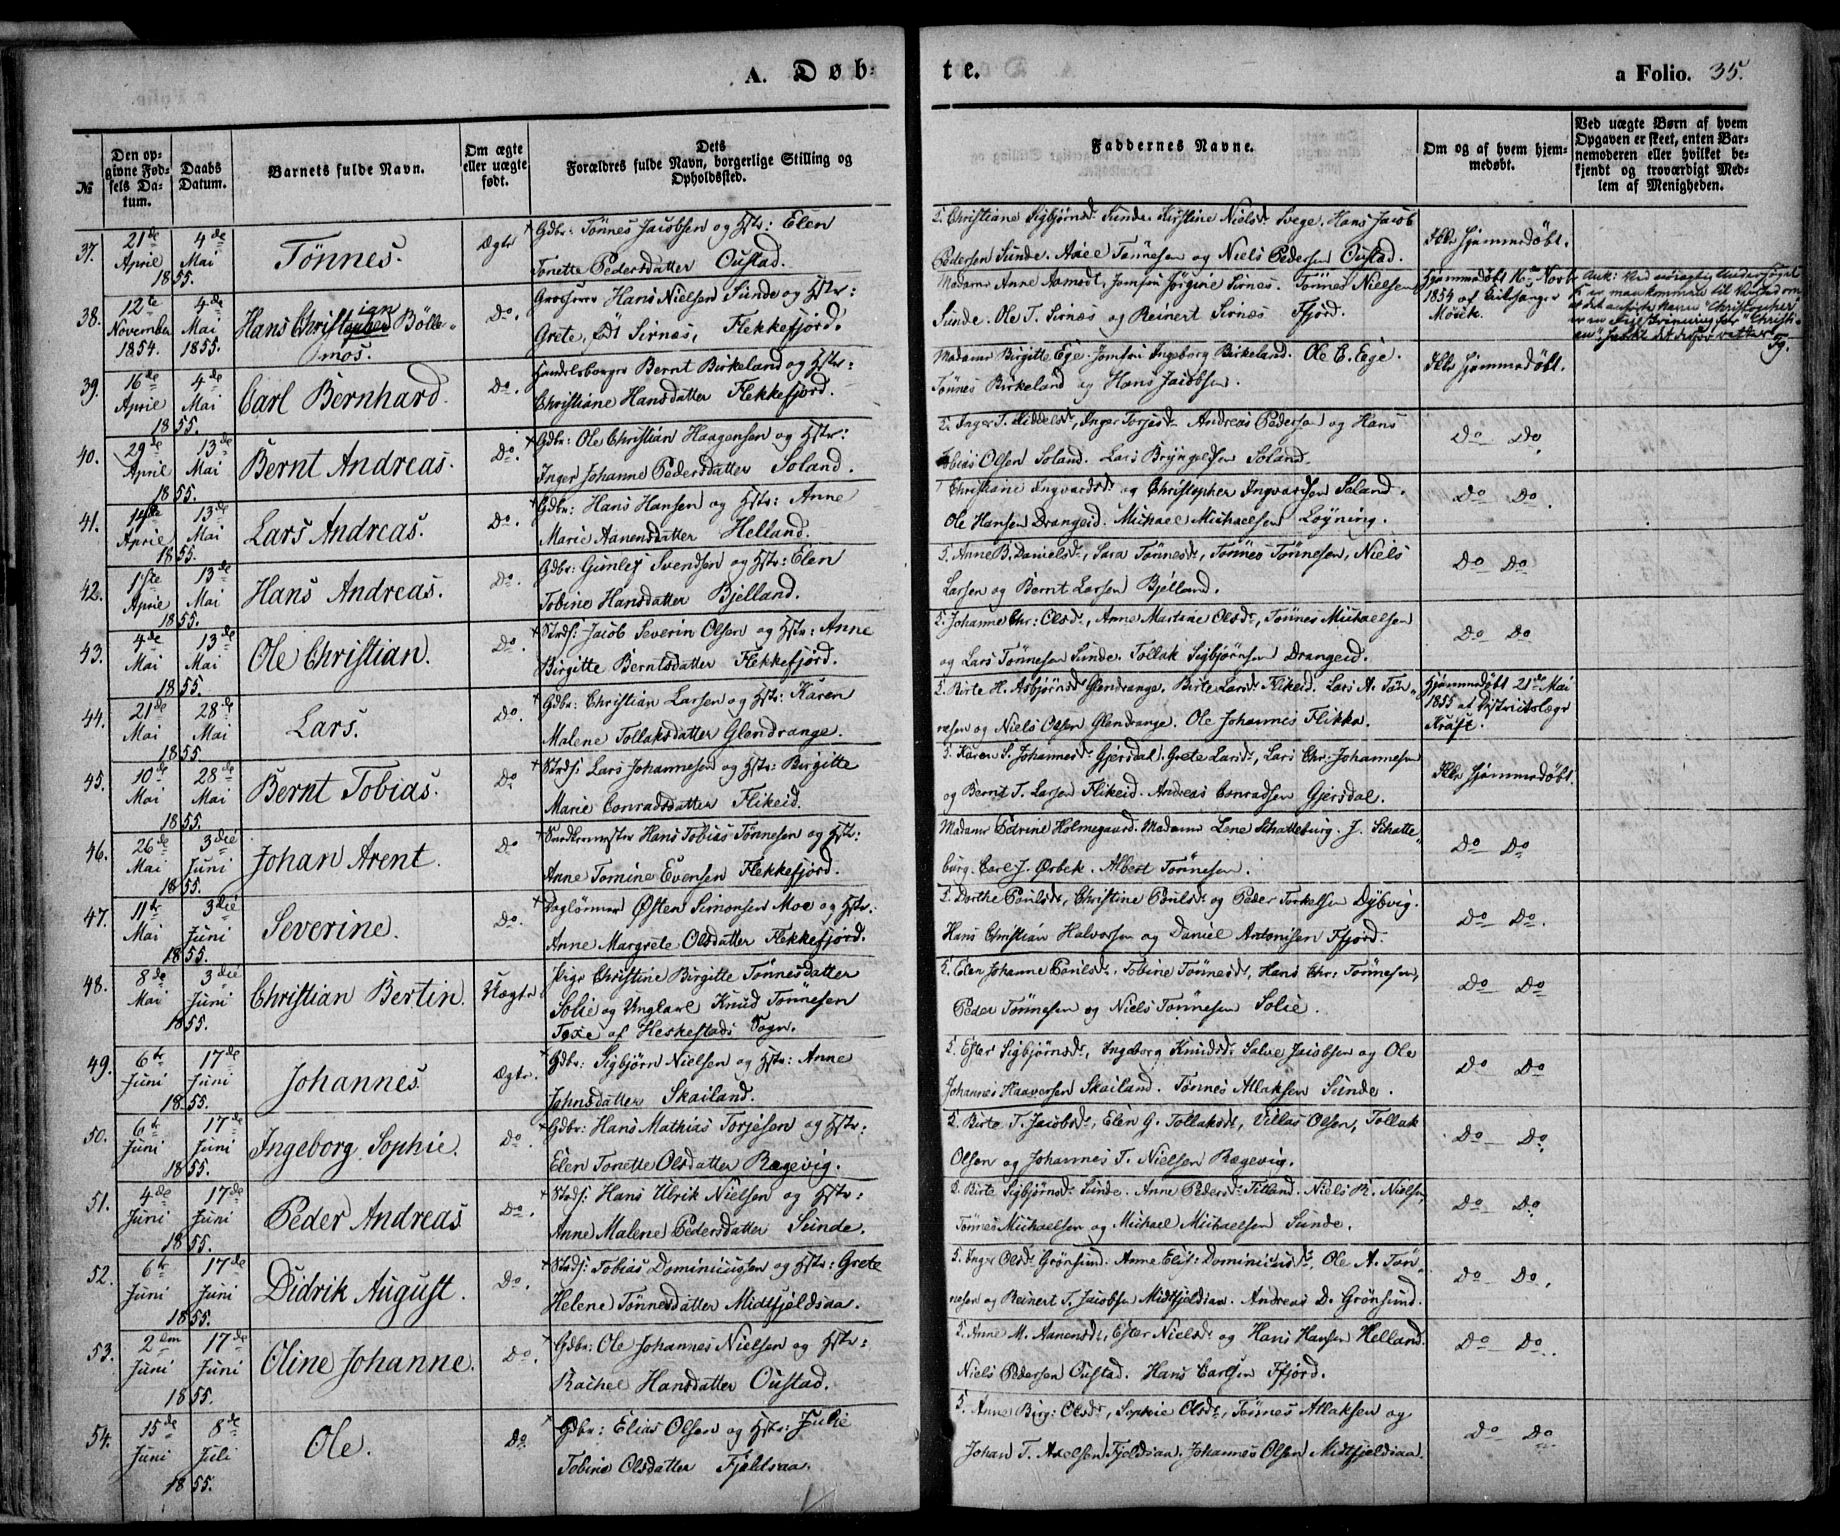 A. Døb-
te.
a Folio. 35.
№
Den opgivne Fødsels Datum.
Daabs Datum.
Barnets fulde Navn.
Om ægte eller uægte født.
Dets Forældres fulde Navn, borgerlige Stilling og Opholdssted.
Faddernes Navne.
Om og af hvem hjemmedøbt.
Ved uægte Børn af hvem Opgaven er skeet, enten Barnemoderen eller hvilket bekjendt og troværdigt Medlem af Menigheden.
37. 21de April 4de Mai 1855. Tønnes. Ægte Gdbr: Tønnes Jacobsen og Hstr: Elen
Tonette Pedersdatter Oustad.
5. Christiane Sigbjørnsd. Sunde. Kirstine Nielsd. Svege. Hans Jacob
Pedersen Sunde. Axel Tønnesen og Niels Pedersen Oustad.
Ikke hjemmedøbt.
38. 12te November 1854. 4de Mai 1855. Hans Christian Bølle-
mos. Do. Grosserer Hans Nielsen Sunde og Hstr:
Grete, født Sirnæs, Flekkefjord.
Madame Anne Aamodt, Jomfru Jørgine Sirnes. Tønnes Nielsen
Sunde. Ole T. Sirnæs og Reinert Sirnæs Ffjord.
Hjemmedøbt 16de Novbr
1854 af Kirkesanger
Mosik.
39. 16de April 4de Mai 1855. Carl Bernhard. Do. Handelsborger Bernt Birkeland og Hstr:
Christiane Hansdatter Flekkefjord.
Madame Birgitte Ege. Jomfru Ingeborg Birkeland. Ole C. Ege.
Tønnes Birkeland og Hans Jacobsen.
Ikke hjemmedøbt.
40. 29de April 13de Mai 1855. Bernt Andreas. Do. Gdbr: Ole Christian Haagensen og Hstr:
Inger Johanne Pedersdatter Soland.
5. Inger T. Middelsd., Inger Torjusd. Andreas Pedersen og Hans
Tobias Olsen Soland. Lars Bryngelsen Soland.
Do Do
41. 1ste April 13de Mai 1855. Lars Andreas. Do. Gdbr: Hans Hansen og Hstr: Anne
Marie Aanensdatter Helland.
Christiane Ingvardsd. og Christopher Ingvardsen Soland.
Ole Hansen Drangeid. Michael Michaelsen Løyning.
Do Do.
42. 1ste April 13de Mai 1855. Hans Andreas. Do. Gdbr: Gunlef Svendsen og Hstr: Elen
Tobine Hansdatter Bjelland.
5. Anne B. Danielsd., Sara Tønnesd., Tønnes Tønnesen, Niels
Larsen og Bernt Larsen Bjelland.
Do Do
43. 4de Mai 13de Mai 1855. Ole Christian. Do. Strds: Jacob Severin Olsen og Hstr: Anne
Birgitte Berntsdatter Flekkefjord.
5. Johanne Chr: Olsd., Anne Martine Olsd., Tønnes Michaelsen
og Lars Tønnesen Sunde. Tollak Sigbjørnsen Drangeid.
Do Do
44. 21de Mai 28de Mai 1855. Lars. Do. Gdbr: Christian Larsen og Hstr: Karen
Malene Tollaksdatter Glendrange.
5. Birte H. Asbjørnsd. Glendrange. Birte Larsd. Flikeid. Lars A. Tøn-
nesen og Niels Olsen Glendrange. Ole Johannes Flikka.
Hjemmedøbt 21de Mai
1855 af Districtslæge
Kraft.
45. 10de Mai 28de Mai 1855. Bernt Tobias. Do Strds: Lars Johannesen og Hstr: Birgitte
Marie Conradsdatter Flikeid.
5. Karen S. Johannesd. Gjersdal. Grete Larsd., Lars Chr: Johannesen
og Bernt T. Larsen Flikeid. Andreas Conradsen Gjersdal.
Ikke hjemmedøbt.
46. 26de Mai 3die Juni 1855. Johan Arent. Do Hans Tobias Tønnesen og Hstr:
Anne Tomine Evensen Flekkefjord.
Madame Petrine Holmegaard. Madame Lene Schatteburg. J. Schatte-
burg. Carl J. Ørbek. Albert Tønnesen.
Do Do
47. 11te Mai 3die Juni 1855. Severine. Do. Daglønner Østen Simonsen Moe og Hstr:
Anne Margrete Olsdatter Flekkefjord.
5. Dorthe Poulsd., Christine Poulsd. og Peder Torkelsen Dybvig.
Hans Christian Halvorsen og Daniel Antonisen Ffjord.
Do Do.
48. 8de Mai 3die Juni 1855. Christian Bertin. Uægte Pige Christine Birgitte Tønnesdatter
Solie og Ungkarl Knud Tønnesen
af Heskestads Sogn.
5. Elen Johanne Poulsd. Tobine Tønnesd., Hans Chr: Tønnesen,
Peder Tønnesen og Niels Tønnesen Solie.
Do Do
49. 6te Juni 17de Juni 1855. Johannes Ægte. Gdbr: Sigbjørn Nielsen og Hstr: Anne
Johnsdatter Skailand.
5. Ester Sigbjørnsd., Ingeborg Knudsd. Salve Jacobsen og Ole
Johannes Haaversen Skailand. Tønnes Atlaksen Sunde.
Do Do
50. 6te Juni 17de Juni 1855. Ingeborg Sophie. Do. Gdbr: Hans Mathias Torjesen og Hstr:
Elen Tonette Olsdatter Rægevig.
5. Birte T. Jacobsd., Elen G. Tollaksd., Villas Olsen, Tollak
Olsen og Johannes T. Nielsen Rægevig.
Do Do
51. 4de Juni 17de Juni 1855. Peder Andreas Do. Strds: Hans Ulrik Nielsen og Hstr:
Anne Malene Pedersdatter Sunde.
5. Birte Sigbjørnsd. Sunde. Anne Pedersd. Tilland. Niels R. Nielsen
Tønnes Michaelsen og Michael Michaelsen Sunde.
Do Do
52. 6te Juni 17de Juni 1855. Didrik August. Do. Strds: Tobias Dominicussen og Hstr: Grete
Helene Tønnesdatter Midtfjeldsaa.
5. Inger Olsd. Grønsund. Anne Elis: Dominicusd., Ole A. Tøn-
nesen og Reinert T. Jacobsen Midtfjeldsaa. Andreas D. Grønsund.
Do Do.
53. 2den Juni 17de Juni 1855. Oline Johanne. Do. Gdbr: Ole Johannes Nielsen og Hstr:
Rachel Hansdatter Oustad.
5. Anne M. Aanensd., Ester Nielsd. og Hans Hansen Helland.
Niels Pedersen Oustad. Hans Carlsen Ffjord.
Do Do.
54. 15de Juni 8de Juli 1855. Ole. Do Gdbr: Elias Olsen og Hstr: Julie
Tobine Olsdatter Fjeldsaa.
5. Anne Birg: Olsd., Sophie Olsd., Tønnes Atlaksen og
Johan T. Axelsen Fjeldsaa. Johannes Olsen Midtfjeldsaa.
Do Do